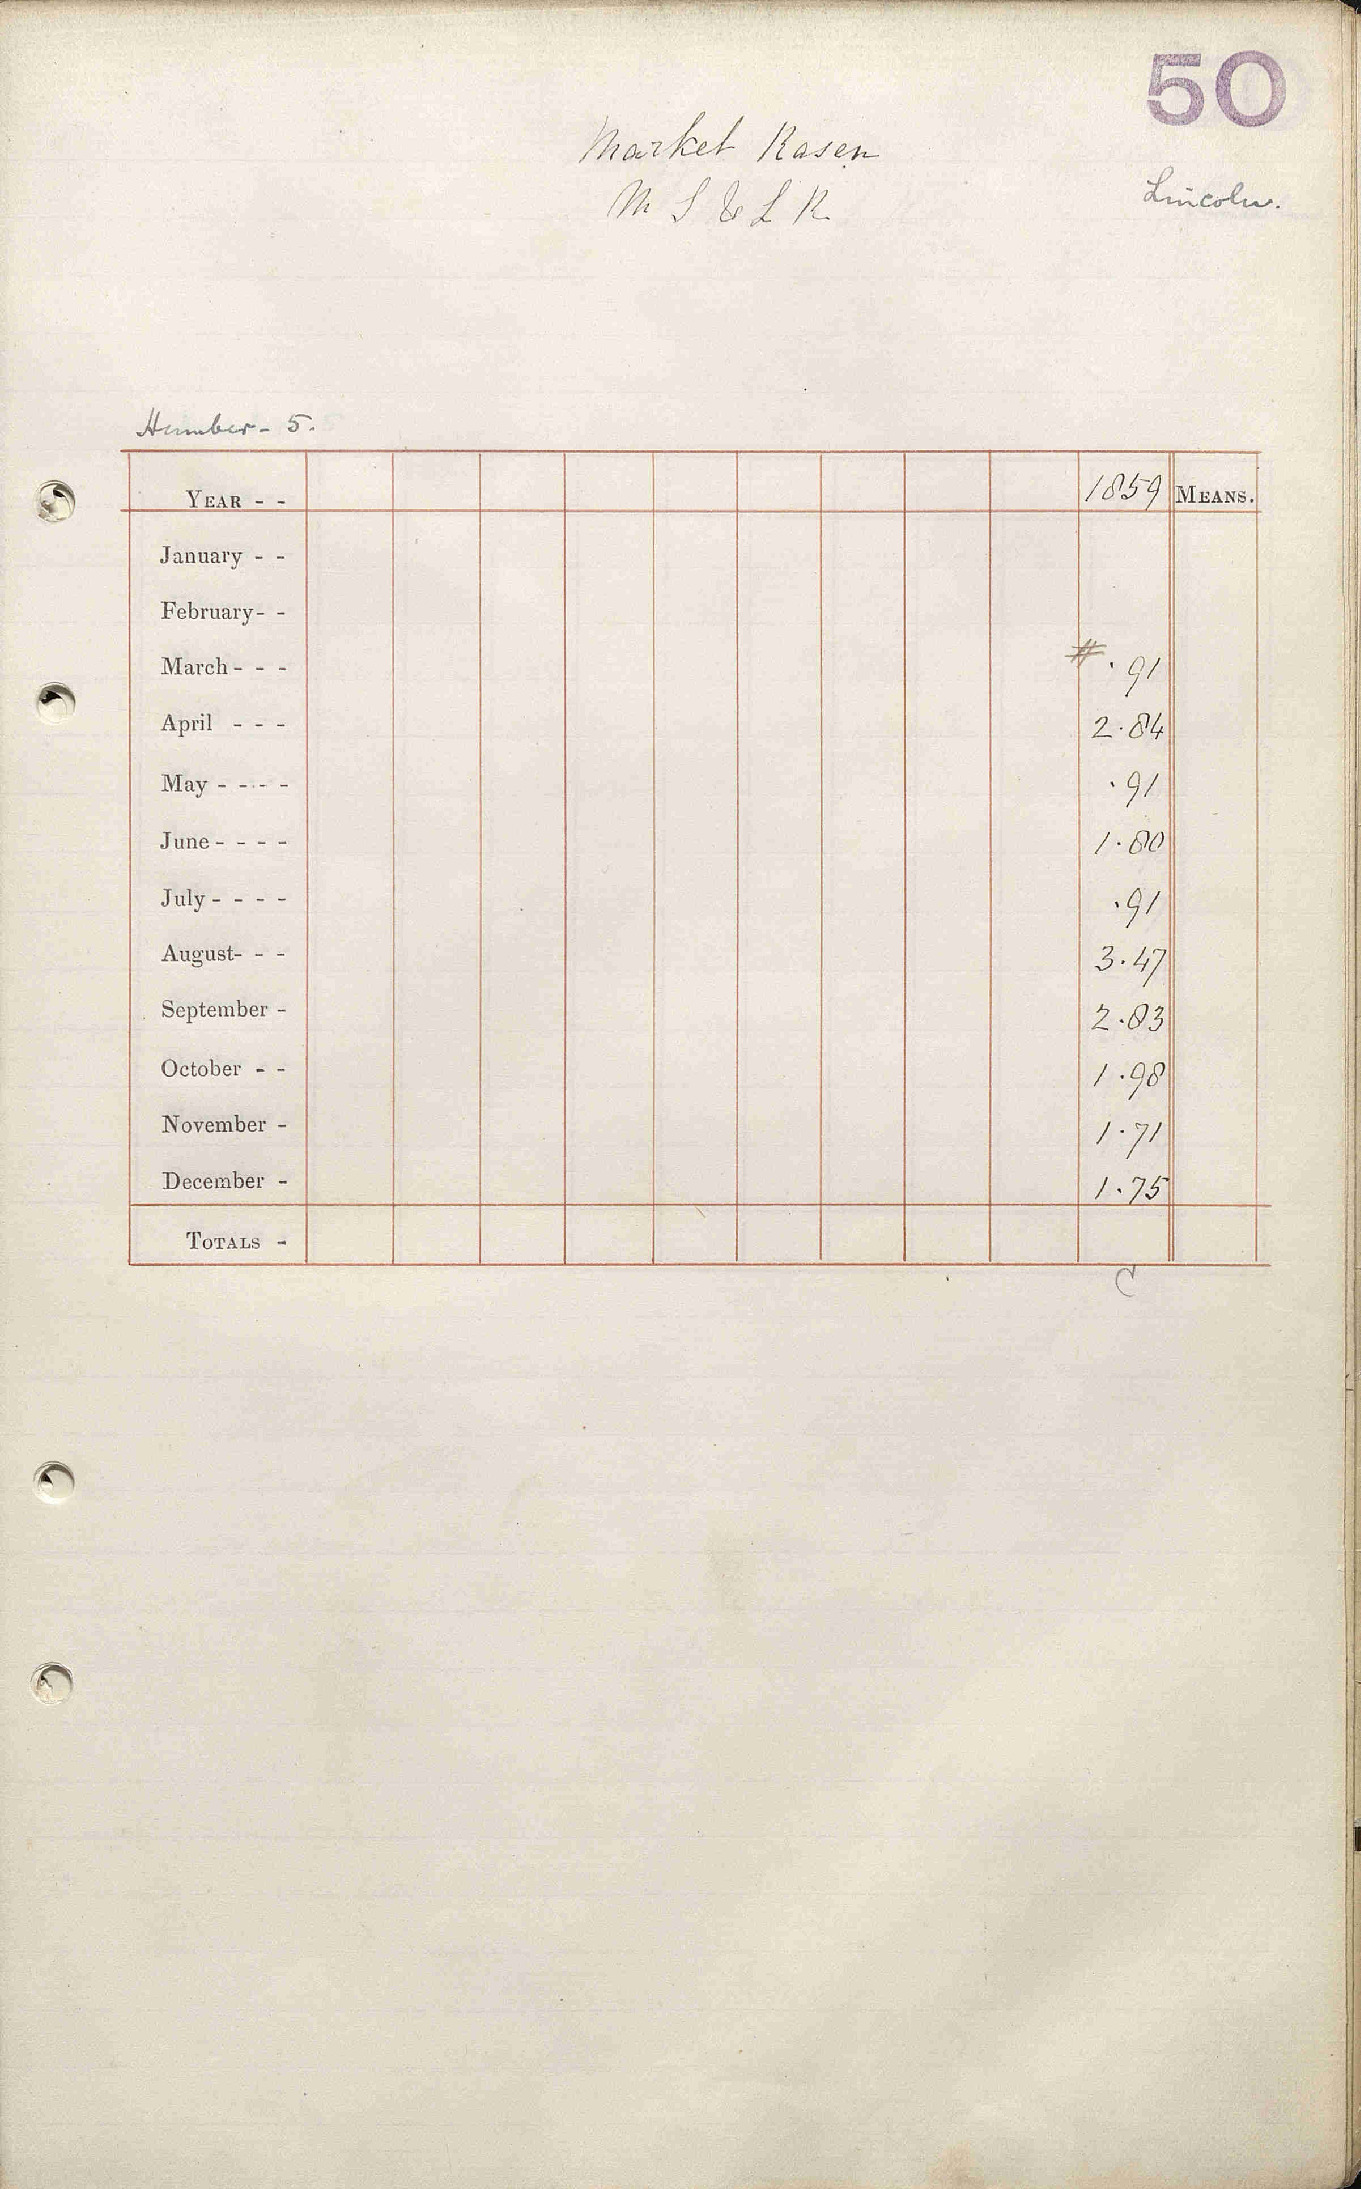 50
Market Rasen
M S & L R
Lincoln.
Humber - 5.
YEAR - - 1859 MEANS.
January - -
February - -
March - - - # .91
April - - - 2.84
May - - - - .91
June - - - - 1.80
July - - - - .91
August - - - 3.47
September - 2.83
October - - 1.98
November - 1.71
December - 1.75
TOTALS -
C